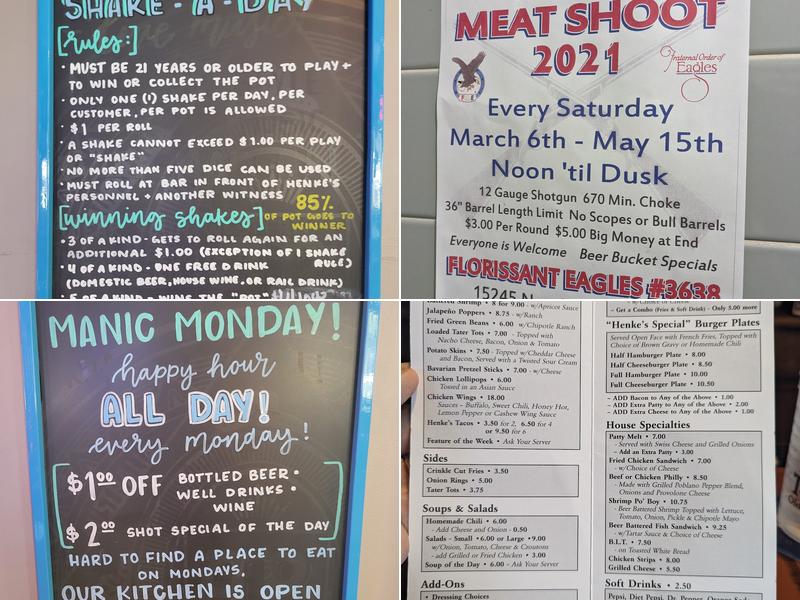 SHAKE-A-DAY
[rules:]
• MUST BE 21 YEARS OR OLDER TO PLAY +
TO WIN OR COLLECT THE POT
• ONLY ONE (1) SHAKE PER DAY, PER
CUSTOMER, PER POT IS ALLOWED
• $1 PER ROLL
• A SHAKE CANNOT EXCEED $1.00 PER PLAY
OR "SHAKE"
• NO MORE THAN FIVE DICE CAN BE USED
• MUST ROLL AT BAR IN FRONT OF HENKE'S
PERSONNEL + ANOTHER WITNESS
85% OF POT GOES TO
WINNER
[winning shakes]
• 3 OF A KIND - GETS TO ROLL AGAIN FOR AN
ADDITIONAL $1.00 (EXCEPTION OF 1 SHAKE
RULE)
• 4 OF A KIND - ONE FREE DRINK
(DOMESTIC BEER, HOUSE WINE, OR RAIL DRINK)
• 5 OF A KIND - WINS THE "POT"
MEAT SHOOT
2021
Fraternal Order of
Eagles
Every Saturday
March 6th - May 15th
Noon 'til Dusk
12 Gauge Shotgun 670 Min. Choke
36" Barrel Length Limit No Scopes or Bull Barrels
$3.00 Per Round $5.00 Big Money at End
Everyone is Welcome Beer Bucket Specials
FLORISSANT EAGLES #3638
15245 N
MANIC MONDAY!
happy hour
ALL DAY!
every monday!
$1.00 OFF BOTTLED BEER •
WELL DRINKS •
WINE
$2.00 SHOT SPECIAL OF THE DAY
HARD TO FIND A PLACE TO EAT
ON MONDAYS,
OUR KITCHEN IS OPEN
Battered Shrimp • 8 for 9.00 - w/Apricot Sauce
Jalapeño Poppers • 8.75 - w/Ranch
Fried Green Beans • 6.00 - w/Chipotle Ranch
Loaded Tater Tots • 7.00 - Topped with
Nacho Cheese, Bacon, Onion & Tomato
Potato Skins • 7.50 - Topped w/Cheddar Cheese
and Bacon, Served with a Twisted Sour Cream
Bavarian Pretzel Sticks • 7.00 - w/Cheese
Chicken Lollipops • 6.00
Tossed in an Asian Sauce
Chicken Wings • 18.00
Sauces - Buffalo, Sweet Chili, Honey Hot,
Lemon Pepper or Cashew Wing Sauce
Henke's Tacos • 3.50 for 2, 6.50 for 4
or 9.50 for 6
Feature of the Week • Ask Your Server
Sides
Crinkle Cut Fries • 3.50
Onion Rings • 5.00
Tater Tots • 3.75
Soups & Salads
Homemade Chili • 6.00
- Add Cheese and Onion - 0.50
Salads - Small • 6.00 or Large • 9.00
w/Onion, Tomato, Cheese & Croutons
- add Grilled or Fried Chicken • 3.00
Soup of the Day • 6.00 - Ask Your Server
Add-Ons
• Dressing Choices
– Get a Combo (Fries & Soft Drink) - Only 5.00 more
"Henke's Special" Burger Plates
Served Open Face with French Fries, Topped with
Choice of Brown Gravy or Homemade Chili
Half Hamburger Plate • 8.00
Half Cheeseburger Plate • 8.50
Full Hamburger Plate • 10.00
Full Cheeseburger Plate • 10.50
– ADD Bacon to Any of the Above • 1.00
– ADD Extra Patty to Any of the Above • 2.00
– ADD Extra Cheese to Any of the Above • 1.00
House Specialties
Patty Melt • 7.00
- Served with Swiss Cheese and Grilled Onions
– Add an Extra Patty • 3.00
Fried Chicken Sandwich • 7.00
- w/Choice of Cheese
Beef or Chicken Philly • 8.50
- Made with Grilled Poblano Pepper Blend,
Onions and Provolone Cheese
Shrimp Po' Boy • 10.75
- Beer Battered Shrimp Topped with Lettuce,
Tomato, Onion, Pickle & Chipotle Mayo
Beer Battered Fish Sandwich • 9.25
- w/Tartar Sauce & Choice of Cheese
B.L.T. • 7.50
- on Toasted White Bread
Chicken Strips • 8.00
Grilled Cheese • 5.50
Soft Drinks • 2.50
Pepsi, Diet Pepsi, Dr. Pepper, Orange Soda